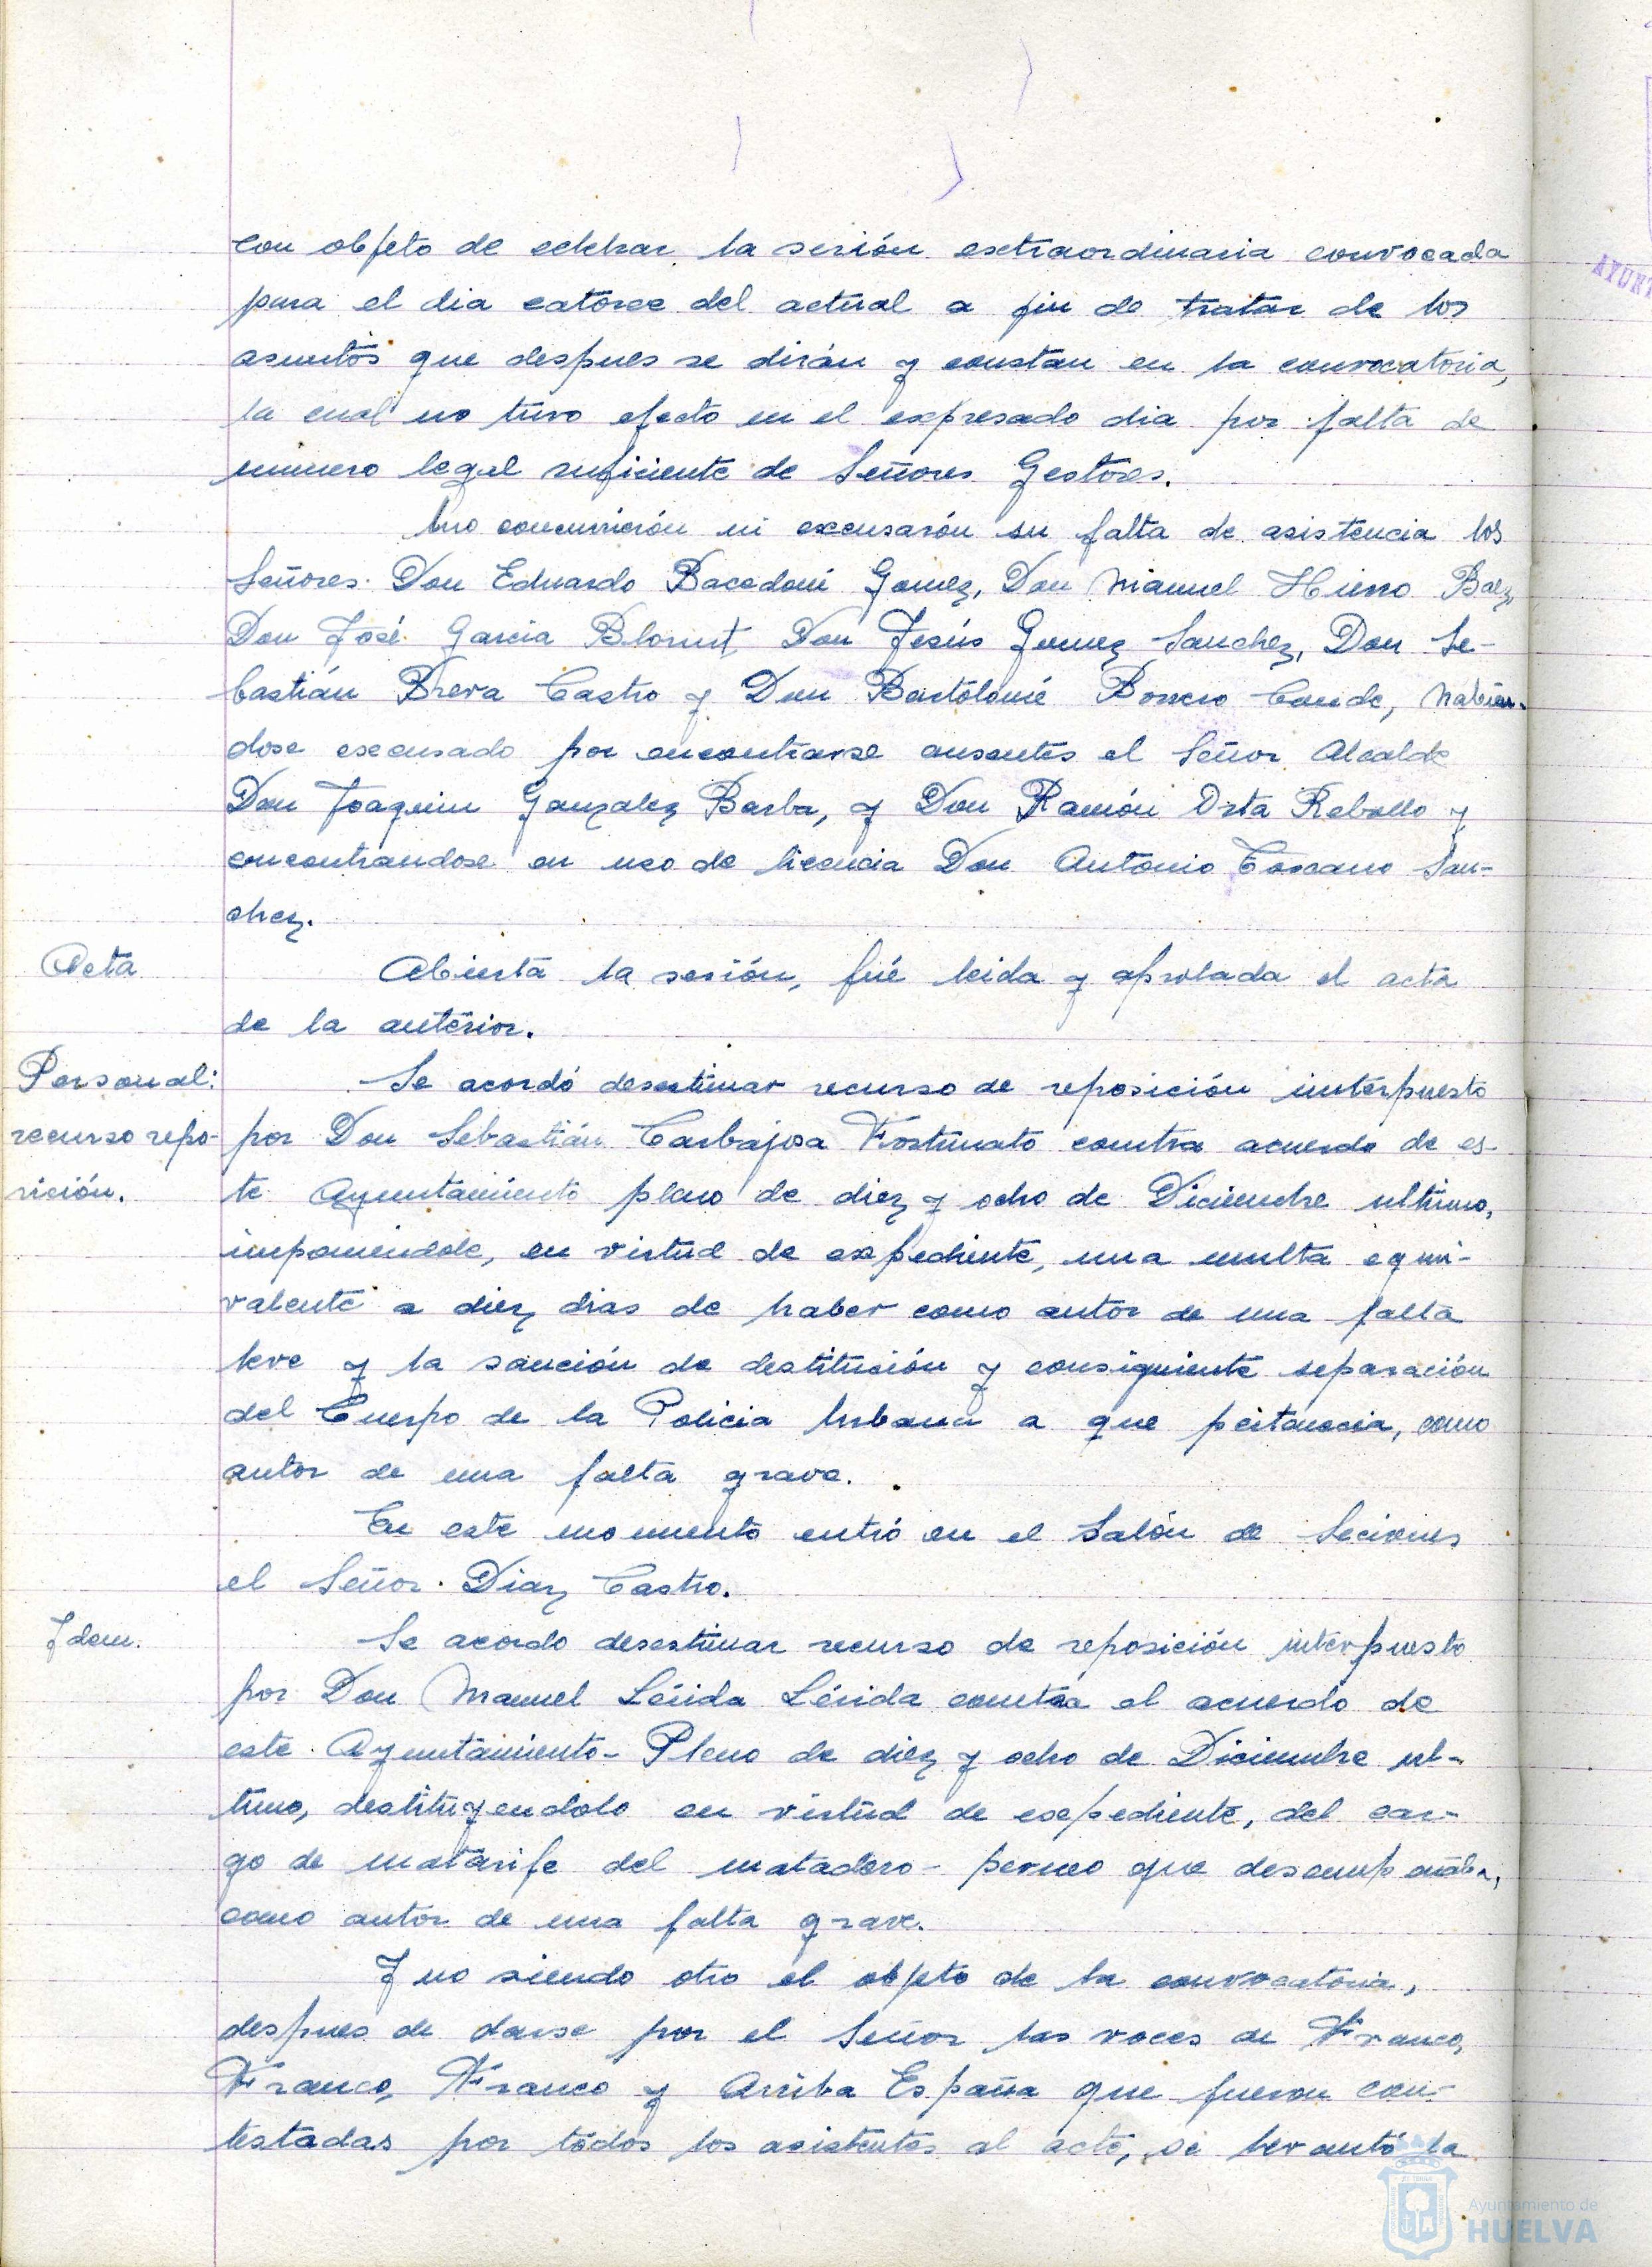 con objeto de celebrar la sesión extraordinaria convocada
para el dia catorce del actual a fin de tratar de los
asuntos que despues se dirán y constan en la convocatoria,
la cual no tuvo efecto en el expresado dia por falta de
numero legal suficiente de Señores Gestores.
No concurrierón ni excusarón su falta de asistencia los
Señores Don Eduardo Gomez, Don Manuel Hierro Baez,
Don José Garcia Don Jesús Gomez Sanchez, Don Se-
bastián Breva Castro y Don Bartolomé Borrero Conde, habien-
dose excusado por encontrarse ausentes el Señor Alcalde
Don Joaquin Gonzalez Barba, y Don Ramón Orta Rebollo y
encontrandose en uso de licencia Don Antonio Toscano San-
chez.
Acta
Abierta la sesión, fué leida y aprobada el acta
de la anterior.
Personal:
recurso repo-
sición.
Se acordó desestimar recurso de reposición interpuesto
por Don Sebastián Carbajosa Fortunato contra acuerdo de es-
te Ayuntamiento pleno de diez y ocho de Diciembre ultimo,
imponiendole, en virtud de expediente, una multa equi-
valente a diez dias de haber como autor de una falta
leve y la sanción de destitución y consiguiente separación
del Cuerpo de la Policia Urbana a que pertenecia, como
autor de una falta grave.
En este momento entró en el Salón de Seciones
el Señor Diaz Castro.
Idem.
Se acordo desestimar recurso de reposición interpuesto
por Don Manuel Lérida Lérida contra el acuerdo de
este Ayuntamiento-Pleno de diez y ocho de Diciembre ul-
timo, destituyendolo en virtud de expediente, del car-
go de matarife del matadero que desempeñaba,
como autor de una falta grave.
Y no siendo otro el objeto de la convocatoria,
despues de darse por el Señor las voces de Franco,
Franco, Franco y Arriba España que fueron con-
testadas por todos los asistentes al acto, se levantó la
AYUNT
Ayuntamiento de
HUELVA